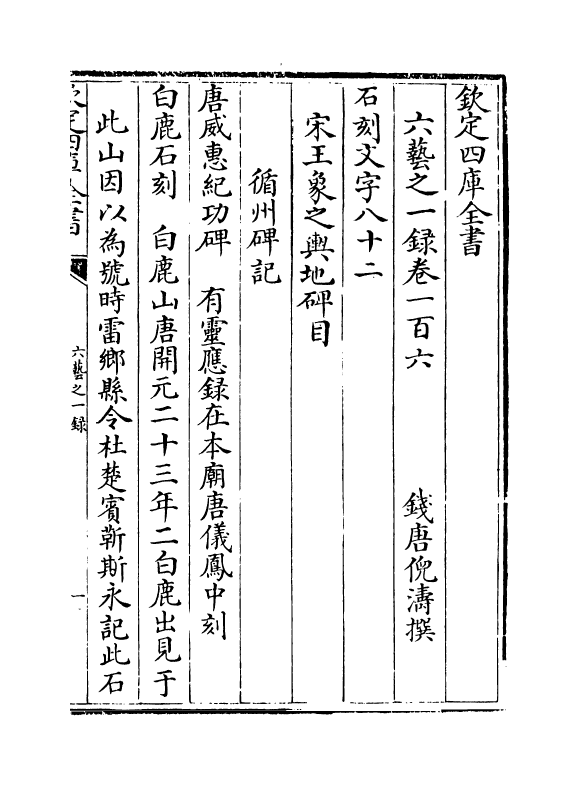 欽定四庫全書
六藝之一録卷一百六
錢唐倪濤撰
石刻文字八十二
宋王象之輿地碑目
循州碑記
唐威惠紀功碑　有靈應録在本廟唐儀鳳中刻
白鹿石刻　白鹿山唐開元二十三年二白鹿出見于
此山因以為號時雷鄉縣令杜楚賓斬斯永記此石
欽定四庫全書
六藝之一録
一